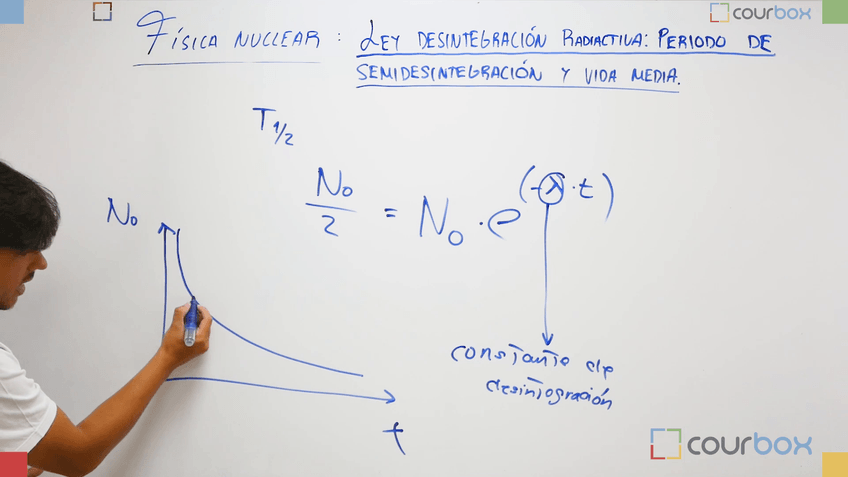 courbox
courbox
FÍSICA NUCLEAR : LEY DESINTEGRACIÓN RADIACTIVA: PERIODO DE
SEMIDESINTEGRACIÓN Y VIDA MEDIA.
T 1/2
N₀/2 = N₀ · e^(-λ · t)
N₀
constante de
desintegración
t
courbox